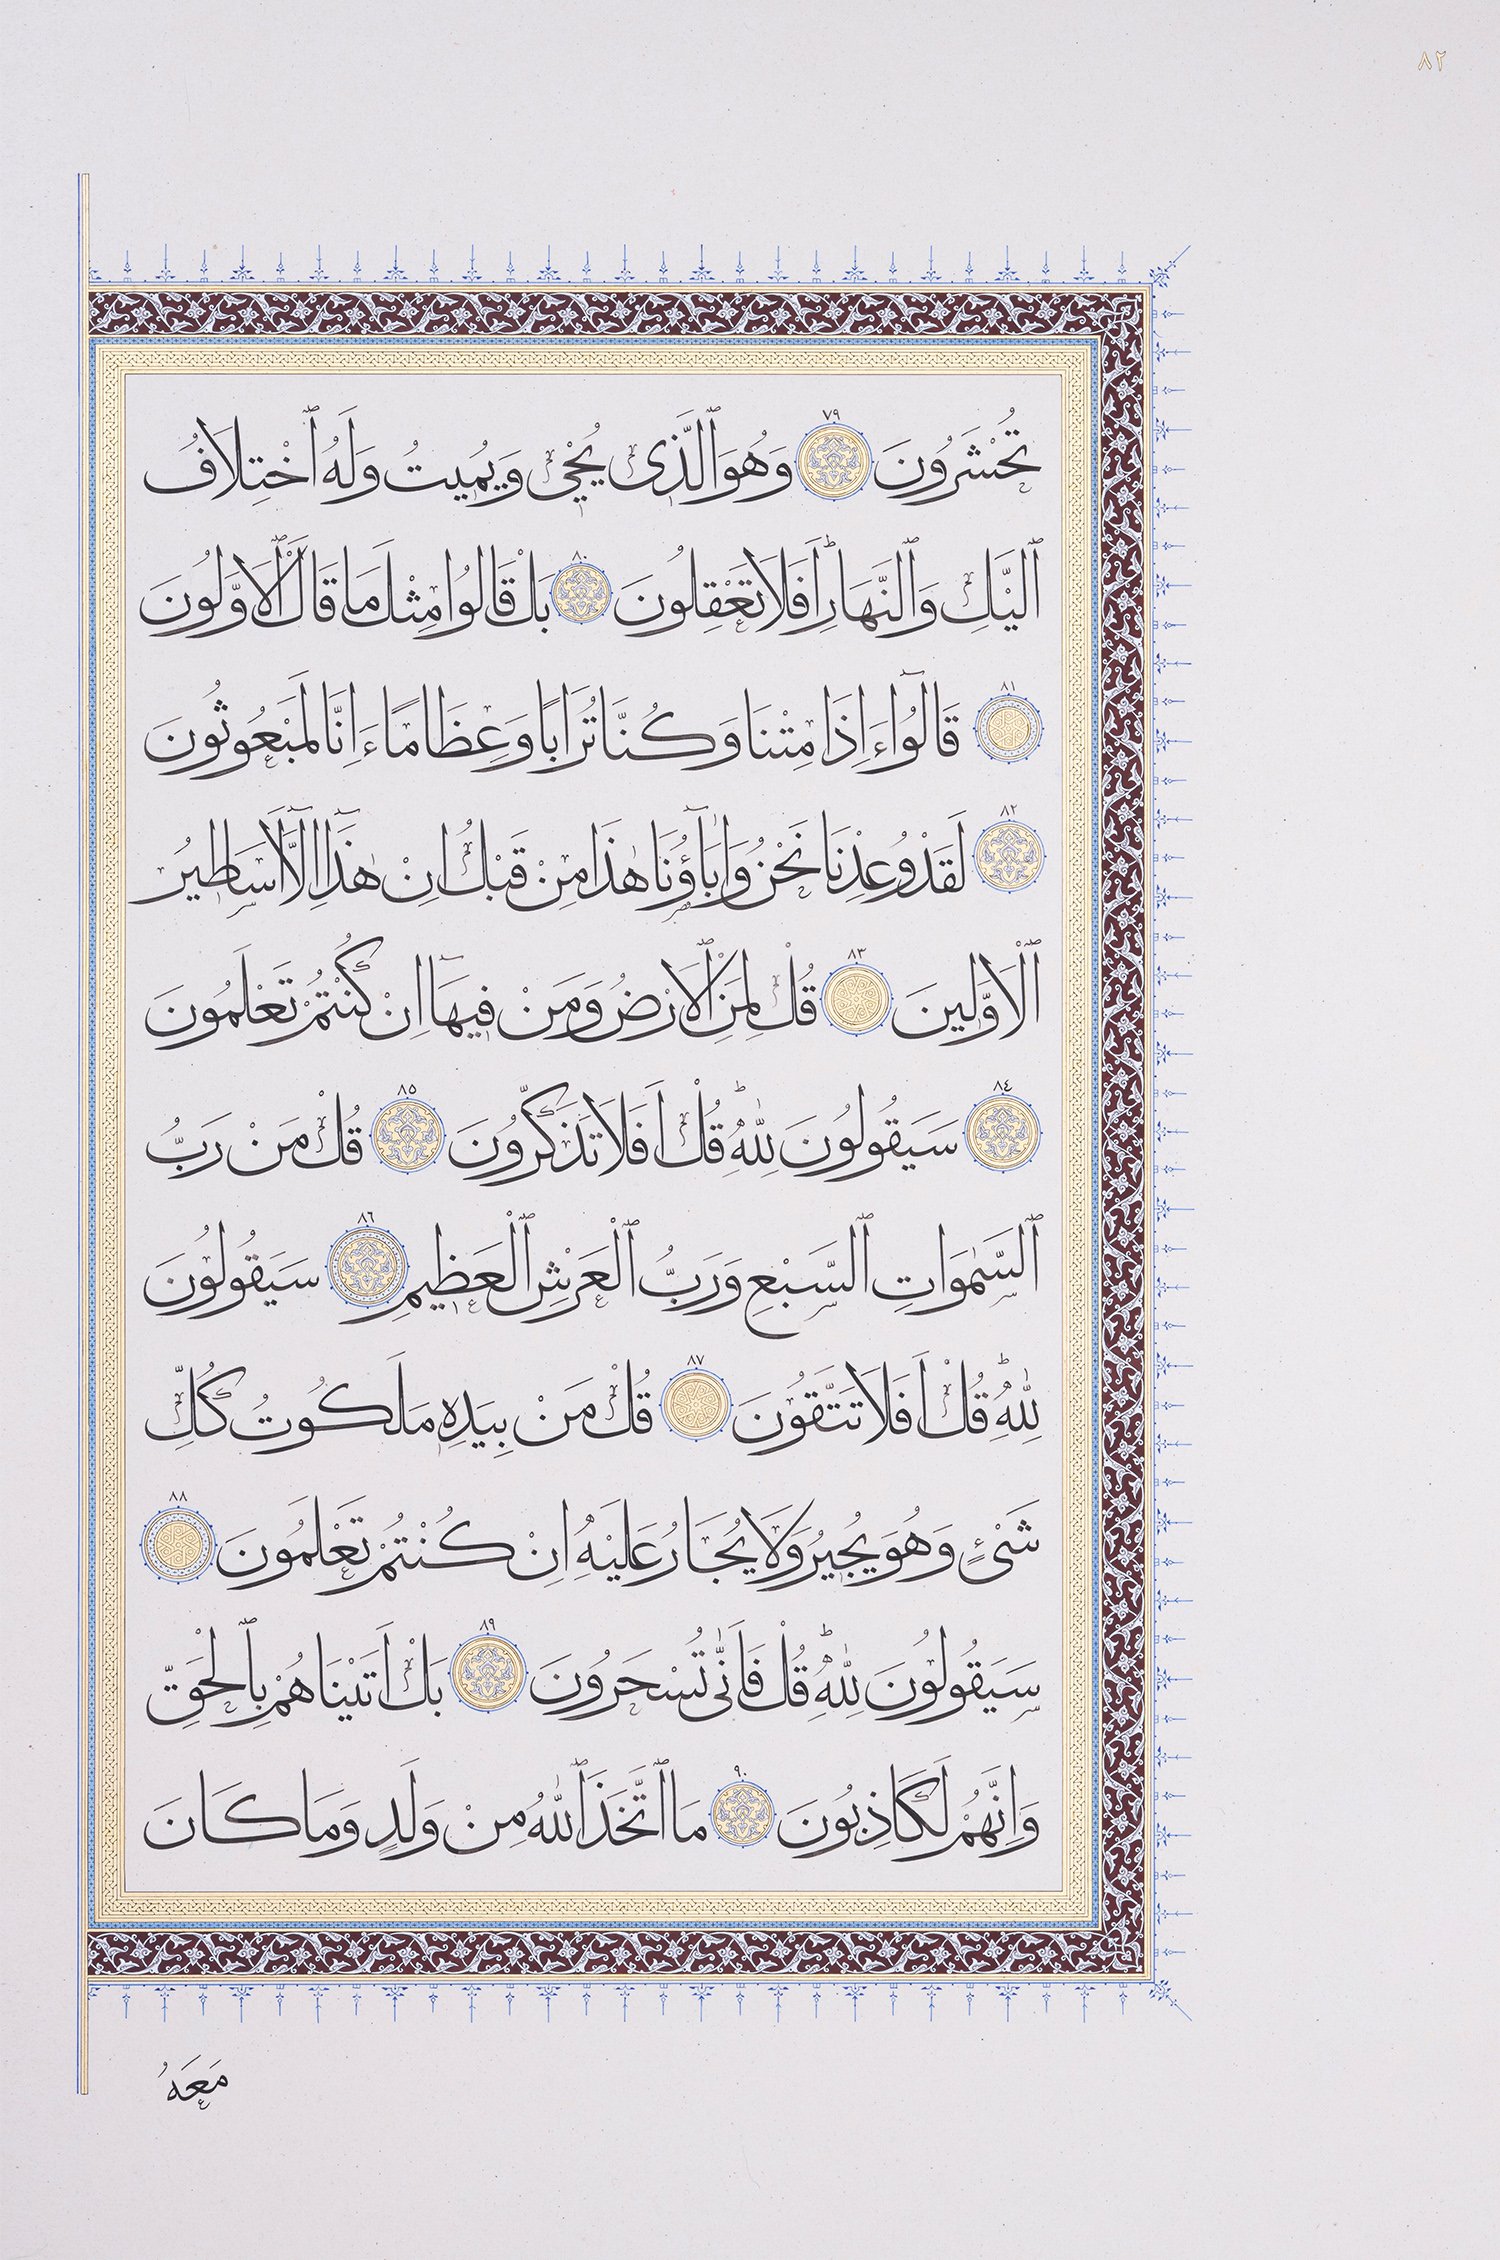 ٨٢
تُحْشَرُونَ ٧٩ وَهُوَ ٱلَّذِى يُحْيِى وَيُمِيتُ وَلَهُ ٱخْتِلَافُ
ٱلَّيْلِ وَٱلنَّهَارِ اَفَلَا تَعْقِلُونَ ٨٠ بَلْ قَالُوا مِثْلَ مَا قَالَ ٱلْاَوَّلُونَ
٨١ قَالُوٓا ءَاِذَا مِتْنَا وَكُنَّا تُرَابًا وَعِظَامًا ءَاِنَّا لَمَبْعُوثُونَ
٨٢ لَقَدْ وُعِدْنَا نَحْنُ وَاٰبَآؤُنَا هٰذَا مِنْ قَبْلُ اِنْ هٰذَٓا اِلَّٓا اَسَاطِيرُ
ٱلْاَوَّلِينَ ٨٣ قُلْ لِمَنِ ٱلْاَرْضُ وَمَنْ فِيهَٓا اِنْ كُنْتُمْ تَعْلَمُونَ
٨٤ سَيَقُولُونَ لِلّٰهِ قُلْ اَفَلَا تَذَكَّرُونَ ٨٥ قُلْ مَنْ رَبُّ
ٱلسَّمٰوَاتِ ٱلسَّبْعِ وَرَبُّ ٱلْعَرْشِ ٱلْعَظِيمِ ٨٦ سَيَقُولُونَ
لِلّٰهِ قُلْ اَفَلَا تَتَّقُونَ ٨٧ قُلْ مَنْ بِيَدِهِ مَلَكُوتُ كُلِّ
شَىْءٍ وَهُوَ يُجِيرُ وَلَا يُجَارُ عَلَيْهِ اِنْ كُنْتُمْ تَعْلَمُونَ ٨٨
سَيَقُولُونَ لِلّٰهِ قُلْ فَاَنّٰى تُسْحَرُونَ ٨٩ بَلْ اَتَيْنَاهُمْ بِٱلْحَقِّ
وَاِنَّهُمْ لَكَاذِبُونَ ٩٠ مَا ٱتَّخَذَ ٱللّٰهُ مِنْ وَلَدٍ وَمَا كَانَ
مَعَهُ